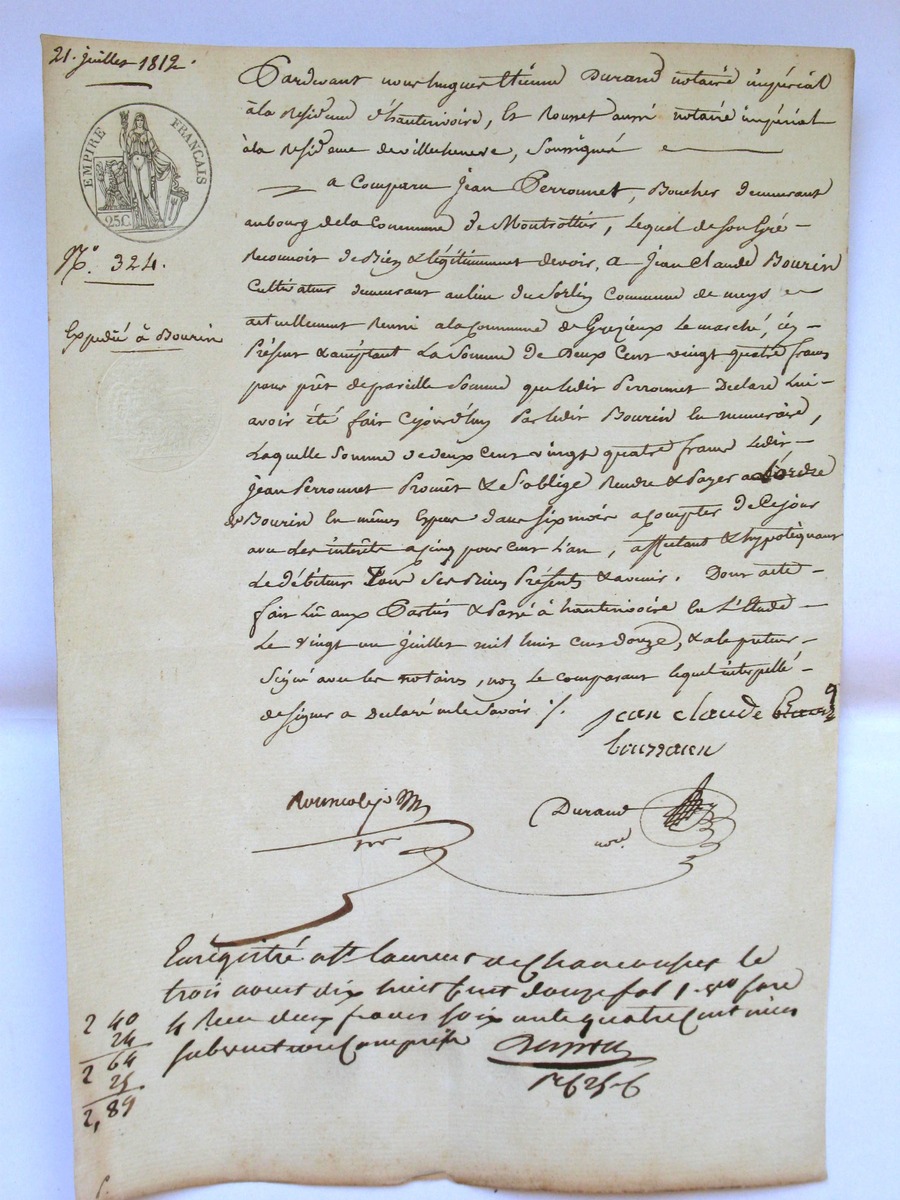 21. juillet 1812.
EMPIRE FRANÇAIS
25C
N.° 324.
Expedié à Bourin
Pardevant nous hugues Etienne Durand notaire impérial
à la Residence d'hauterivoire, & Rousset aussi notaire impérial
à la Residence de villechenève, soussignés
a Comparu Jean Perronnet, Boucher demeurant
au bourg de la Commune de Montrottier, lequel de son Gré
Reconnoit De Bien & légitimement devoir, a Jean Claude Bourin
Cultivateur demeurant au lieu du Commune de meys
actuellement Reuni a la Commune de Grezieux Le marché, ici
Présent & acceptant La Somme De Deux Cent vingt quatre francs
pour prêt de pareille Somme que ledit Perronnet Declare Lui
avoir été fait Cejourd'huy Par ledit Bourin En numeraire,
Laquelle Somme de deux Cent vingt quatre francs Ledit
Jean Perronnet Promet & s'oblige Rendre & Payer a
Bourin En mêmes Especes dans six mois a Compter De Ce jour
avec des intérêts a cinq pour Cent L'an, affectant & hypotéquant
Le débiteur Tous Ses Biens Présents & avenir. Dont acte
fait Lû aux Parties & Passé à hauterivoire En L'étude
Le vingt un juillet mil huit Cent douze, & a le preteur
Signé avec les notaires, non le Comparant lequel interpellé
de signer a Declaré ne le Savoir ./.
jean claude
Durand
not.
Enregistré a St. laurent de Chamousset le
trois aout dix huit Cent douze fol 1. vo Case
4 Reçu deux francs soixante quatre Centimes
subvention Comprise
2 40
24
2 64
25
2,89